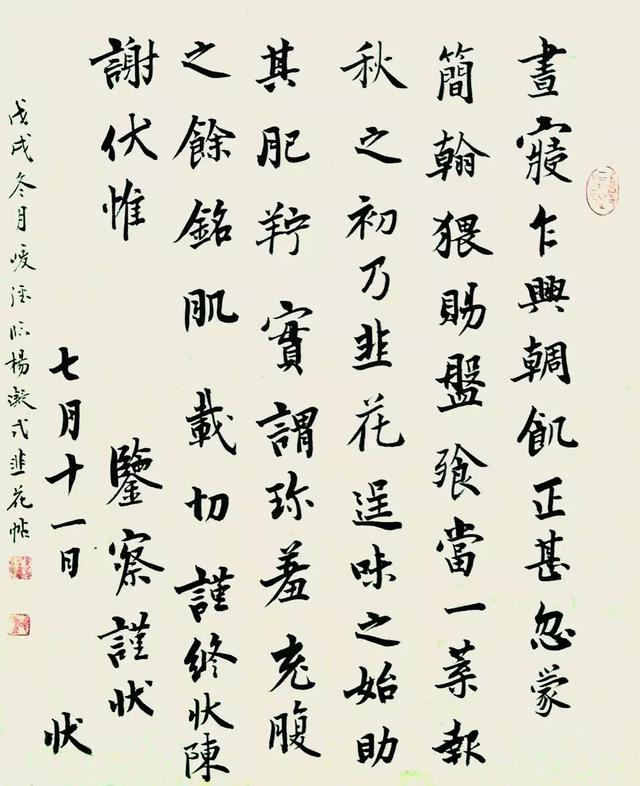 晝寢乍興輖飢正甚忽蒙
簡翰猥賜盤飧當一葉報
秋之初乃韭花逞味之始助
其肥羜實謂珍羞充腹
之餘銘肌載切謹終狀陳
謝伏惟鑒察謹狀
七月十一日狀
戊戌冬月 臨楊凝式韭花帖